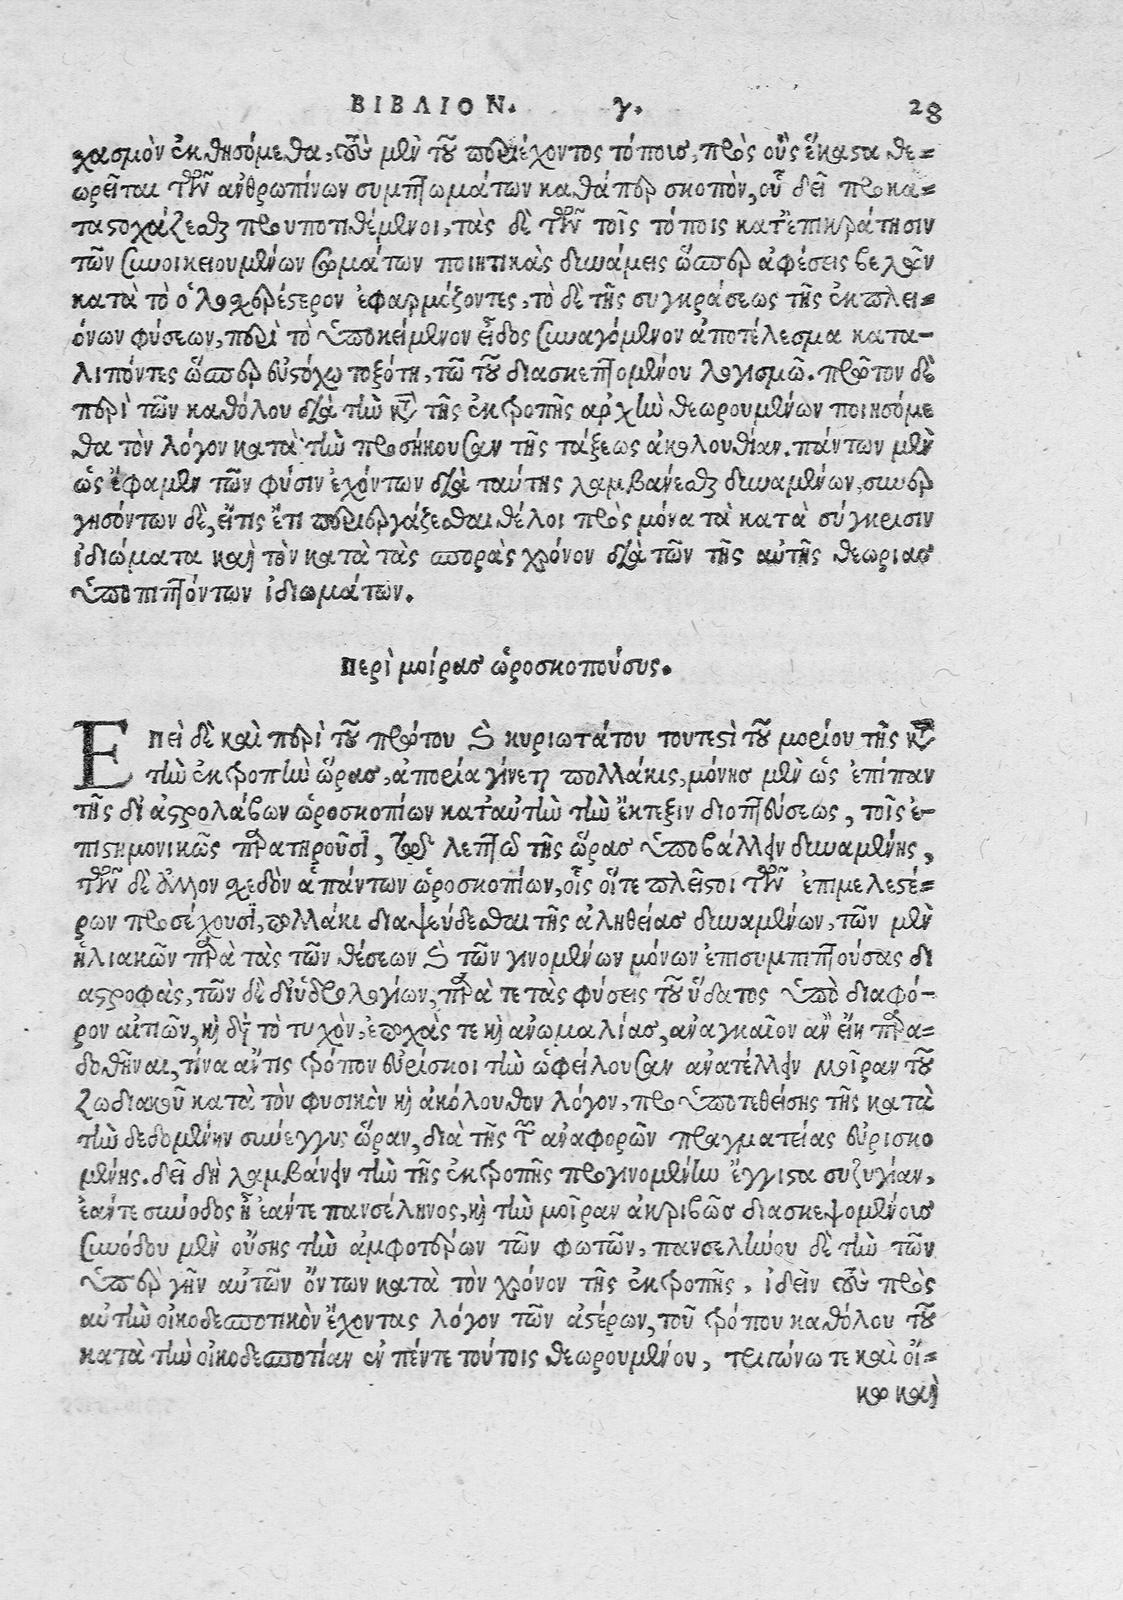 ΒΙΒΛΙΟΝ. γ. 28
χασμὸν ἐκθησόμεθα, τοὺς μὲν τοῦ περιέχοντος τόπους, πρὸς οὓς ἕκαστα θε=
ωρεῖται τῶν ἀνθρωπίνων συμπτωμάτων καθάπερ σκοπὸν, οὗ δεῖ προκα=
ταστοχάζεσθαι προυποτιθέμενοι, τὰς δὲ τῶν τοῖς τόποις κατ' ἐπικράτησιν
τῶν συνοικειουμένων σωμάτων ποιητικὰς δυνάμεις ὥσπερ ἀφέσεις βελῶν
κατὰ τὸ ὁλοσχερέστερον ἐφαρμόζοντες, τὸ δὲ τῆς συγκράσεως τῆς ἐκ πλει=
όνων φύσεων, περὶ τὸ ὑποκείμενον εἶδος συναγόμενον ἀποτέλεσμα κατα-
λιπόντες ὥσπερ εὐστόχῳ τοξότῃ, τῷ τοῦ διασκεπτομένου λογισμῷ. πρῶτον δὲ
περὶ τῶν καθόλου διὰ τὴν κατὰ τῆς ἐκτροπῆς ἀρχὴν θεωρουμένων ποιησόμε
θα τὸν λόγον κατὰ τὴν προσήκουσαν τῆς τάξεως ἀκολουθίαν. πάντων μὲν
ὡς ἔφαμεν τῶν φύσιν ἐχόντων διὰ ταύτης λαμβάνεσθαι δυναμένων, συνερ
γησόντων δὲ, εἴ τις ἔτι περιεργάζεσθαι θέλοι πρὸς μόνα τὰ κατὰ σύγκρισιν
ἰδιώματα καὶ τὸν κατὰ τὰς σπορὰς χρόνον διὰ τῶν τῆς αὐτῆς θεωρίας
ὑποπιπτόντων ἰδιωμάτων.
Περὶ μοίρας ὡροσκοπούσης.
Επεὶ δὲ καὶ περὶ τοῦ πρώτου καὶ κυριωτάτου τουτεστὶ τοῦ μορίου τῆς κατὰ
τὴν ἐκτροπὴν ὥρας, ἀπορία γίνεται πολλάκις, μόνης μὲν ὡς ἐπίπαν
τῆς δι' ἀστρολάβων ὡροσκοπίων κατ' αὐτὴν τὴν ἔκτεξιν διοπτεύσεως, τοῖς ἐ-
πιστημονικῶς παρατηροῦσι, τὸ λεπτὸν τῆς ὥρας ὑποβάλλειν δυναμένης,
τῶν δὲ ἄλλων σχεδὸν ἁπάντων ὡροσκοπίων, οἷς οἵ τε πλεῖστοι τῶν ἐπιμελεστέ=
ρων προσέχουσι, πολλάκι διαψεύδεσθαι τῆς ἀληθείας δυναμένων, τῶν μὲν
ἡλιακῶν παρὰ τὰς τῶν θέσεων καὶ τῶν γινομένων μόνων ἐπισυμπιπτούσας δι
αστροφὰς, τῶν δὲ δι' ὑδρολογίων, παρά τε τὰς φύσεις τοῦ ὕδατος ὑπὸ διαφό-
ρον αἰτιῶν, καὶ διὰ τὸ τυχὸν, ἐποχάς τε καὶ ἀνωμαλίας, ἀναγκαῖον ἂν εἴη παρα=
δοθῆναι, τίνα ἄν τις τρόπον εὑρίσκοι τὴν ὠφείλουσαν ἀνατέλλειν μοῖραν τοῦ
ζωδιακοῦ κατὰ τὸν φυσικὸν καὶ ἀκόλουθον λόγον, προυποτεθείσης τῆς κατὰ
τὴν δεδομένην σύνεγγυς ὥραν, διὰ τῆς τῶν ἀναφορῶν πραγματείας εὑρισκο
μένης. δεῖ δὴ λαμβάνειν τὴν τῆς ἐκτροπῆς προγινομένην ἔγγιστα συζυγίαν,
ἐάντε σύνοδος ᾖ ἐάντε πανσέληνος, καὶ τὴν μοῖραν ἀκριβῶς διασκεψομένους
συνόδου μὲν οὔσης τὴν ἀμφοτέρων τῶν φωτῶν, πανσελήνου δὲ τὴν τῶν
ὑπὲρ γῆν αὐτῶν ὄντων κατὰ τὸν χρόνον τῆς ἐκτροπῆς, ἰδεῖν τοὺς πρὸς
αὐτὴν οἰκοδεσποτικὸν ἔχοντας λόγον τῶν ἀστέρων, τοῦ τρόπου καθόλου τοῦ
κατὰ τὴν οἰκοδεσποτίαν ἐν πέντε τούτοις θεωρουμένου, τριγώνῳ τε καὶ οἴ=
κῳ καὶ